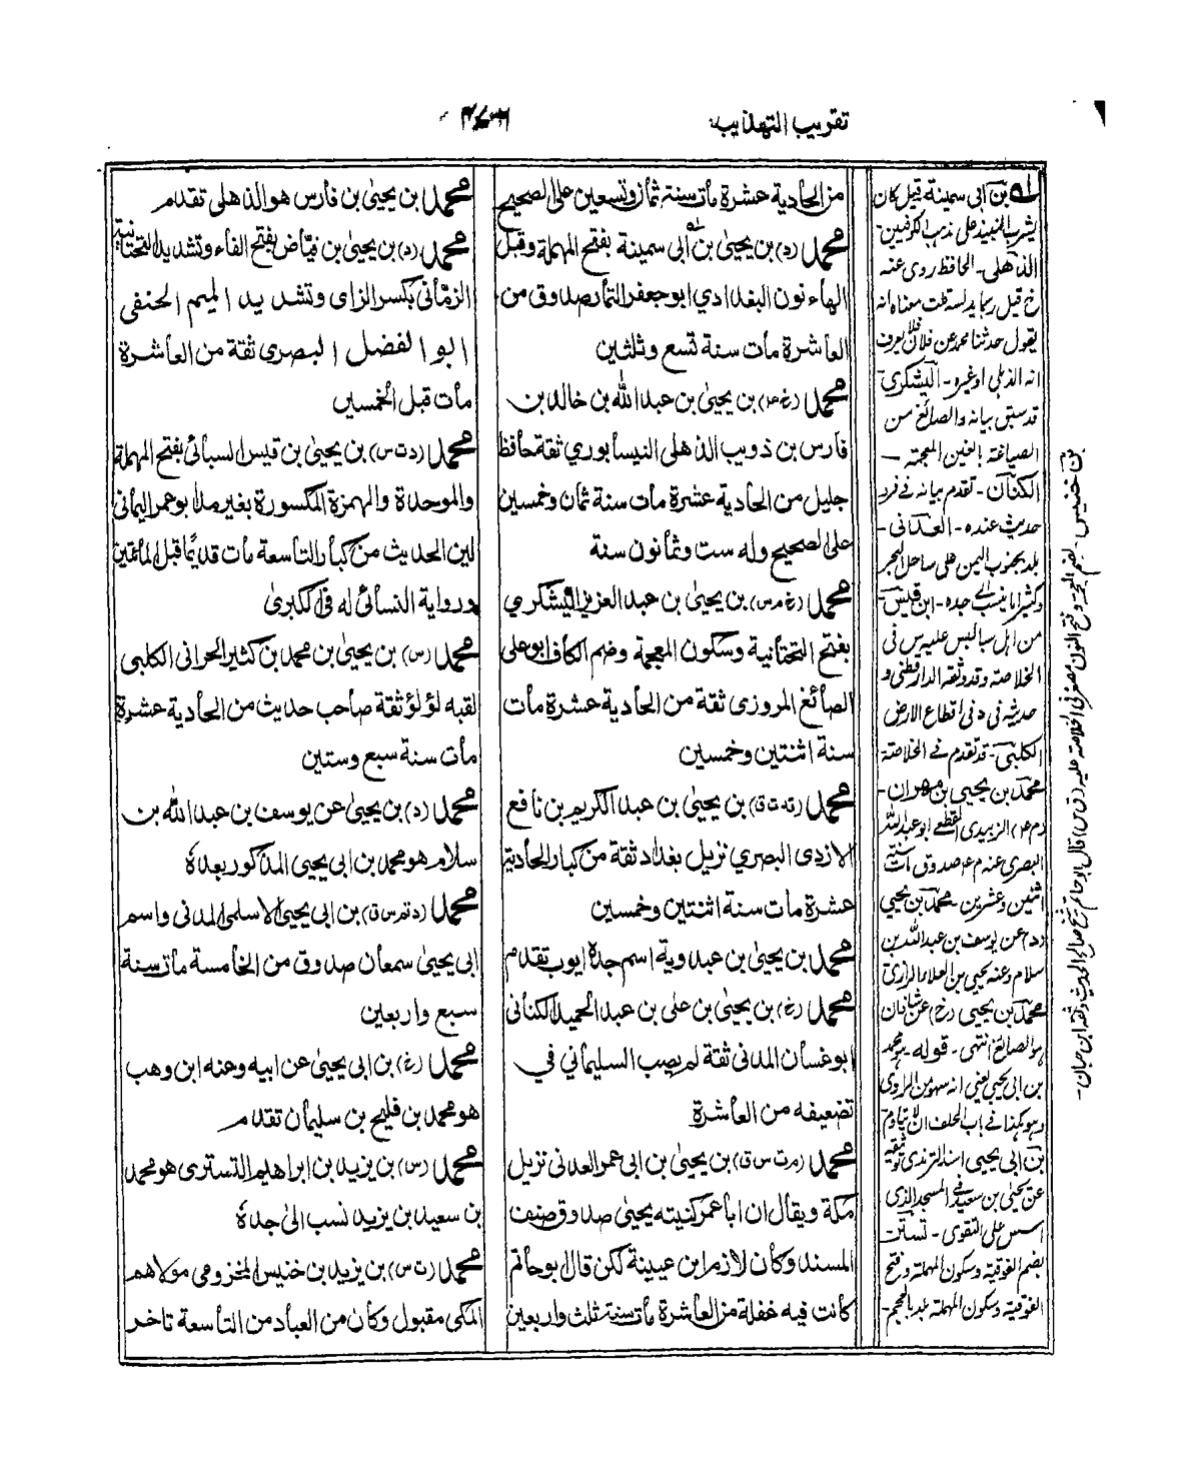 تقريب التهذيب
من الحادية عشرة مات سنة ثمان وتسعين على الصحيح
محمد (د) بن يحيىٰ بن ابى سمينة بفتح المهملة وقبل
الهاء نون البغدادي ابو جعفر التمار صدوق من
العاشرة مات سنة تسع وثلثين
محمد (خ ۴) بن يحيىٰ بن عبد الله بن خالد بن
فارس بن ذويب الذهلى النيسابوري ثقة حافظ
جليل من الحادية عشرة مات سنة ثمان وخمسين
على الصحيح وله ست وثمانون سنة
محمد (خ م س) بن يحيىٰ بن عبد العزيز اليشكري
بفتح التحتانية وسكون المعجمة وضم الكاف ابو على
الصائغ المروزى ثقة من الحادية عشرة مات
سنة اثنتين وخمسين
محمد (ت ق) بن يحيىٰ بن عبد الكريم بن نافع
الازدى البصري نزيل بغداد ثقة من كبار الحادية
عشرة مات سنة اثنتين وخمسين
محمد بن يحيىٰ بن عبدوية اسم جدة ايوب تقدم
محمد (خ) بن يحيىٰ بن على بن عبد الحميد الكنانى
ابو غسان المدنى ثقة لم يصب السليمانى في
تضعيفه من العاشرة
محمد (م ت س ق) بن يحيىٰ بن ابى عمر العدنى نزيل
مكة ويقال ان ابا عمر كنيته يحيىٰ صدوق صنف
المسند وكان لازم ابن عيينة لكن قال ابو حاتم
كانت فيه غفلة من العاشرة مات سنة ثلث واربعين
محمد بن يحيىٰ بن فارس هو الذهلى تقدم
محمد (د) بن يحيىٰ بن فيّاض بفتح الفاء وتشديد التحتانية
الزمّانى بكسر الزاى وتشديد الميم الحنفى
ابو الفضل البصرى ثقة من العاشرة
مات قبل الخمسين
محمد (د ت س) بن يحيىٰ بن قيس السبائى بفتح المهملة
والموحدة والهمزة المكسورة بغير مد ابو عمر اليمانى
لين الحديث من كبار التاسعة مات قديمًا قبل المائتين
ورواية النسائى له فى الكبرىٰ
محمد (س) بن يحيىٰ بن محمد بن كثير الحرانى الكلبى
لقبه لؤلؤ ثقة صاحب حديث من الحادية عشرة
مات سنة سبع وستين
محمد (د) بن يحيىٰ عن يوسف بن عبد الله بن
سلام هو محمد بن ابى يحيىٰ المذكور بعدهٗ
محمد (د تم س ق) بن ابى يحيىٰ الاسلمى المدنى واسم
ابى يحيىٰ سمعان صدوق من الخامسة مات سنة
سبع واربعين
محمد (خ) بن ابى يحيىٰ عن ابيه وعنه ابن وهب
هو محمد بن فليح بن سليمان تقدم
محمد (س) بن يزيد بن ابراهيم التسترى هو محمد
بن سعيد بن يزيد نسب الىٰ جدهٗ
محمد (ت س) بن يزيد بن خنيس المخزومى مولاهم
المكى مقبول وكان من العباد من التاسعة تاخر
بن ابى سمينة قيل كان
يشرب النبيذ على مذهب الكوفيين-
الذهلى- الحافظ روى عنه
خ قيل ربما يدلسه قلت معناه انه
يقول حدثنا محمد عن فلان لا يعرف
انه الذهلى او غيره- اليشكرى
قد سبق بيانه والصائغ من
الصياغة بالغين المعجمة-
الكنانى- تقدم بيانه فى فرد
حديث عنده- العدنى-
بلد بجنوب اليمن على ساحل البحر
وكثيرا ما ينسب الى جده- ابن قيس-
من اهل سبا ليس عليه س فى
الخلاصة وقد وثقه الدارقطنى و
حديثه فى اقطاع الارض
الكلبى- قد تقدم فى الخلاصة
محمد بن يحيى بن مهران-
(م ۴) الزبيدى القطعى ابو عبد الله
البصرى عنه م ۴ صدوق مات سنة
محمد بن يحيى
(د) عن يوسف بن عبد الله بن
سلام وعنه يحيى بن العلاء الرازى
محمد بن يحيى (خ) عن شاذان
هو الصائغ انتهى- قوله- محمد
بن ابى يحيى يعنى انه سهو من الراوى
وهو هكذا فى باب الحلف ان لا يأتدم
بن ابى يحيى اسند الترمذى توثيقه
عن يحيى بن سعيد فى المسجد الذى
اسس على التقوى- تستر
بضم الفوقية وسكون المهملة وفتح
الفوقية وسكون المهملة بلد بالعجم-
بن خنيس- بضم المعجمة وفتح النون مصغر فى الخلاصة عليه (ت ق) قال ابو حاتم شيخ صالح الحديث وثقه ابن حبان-